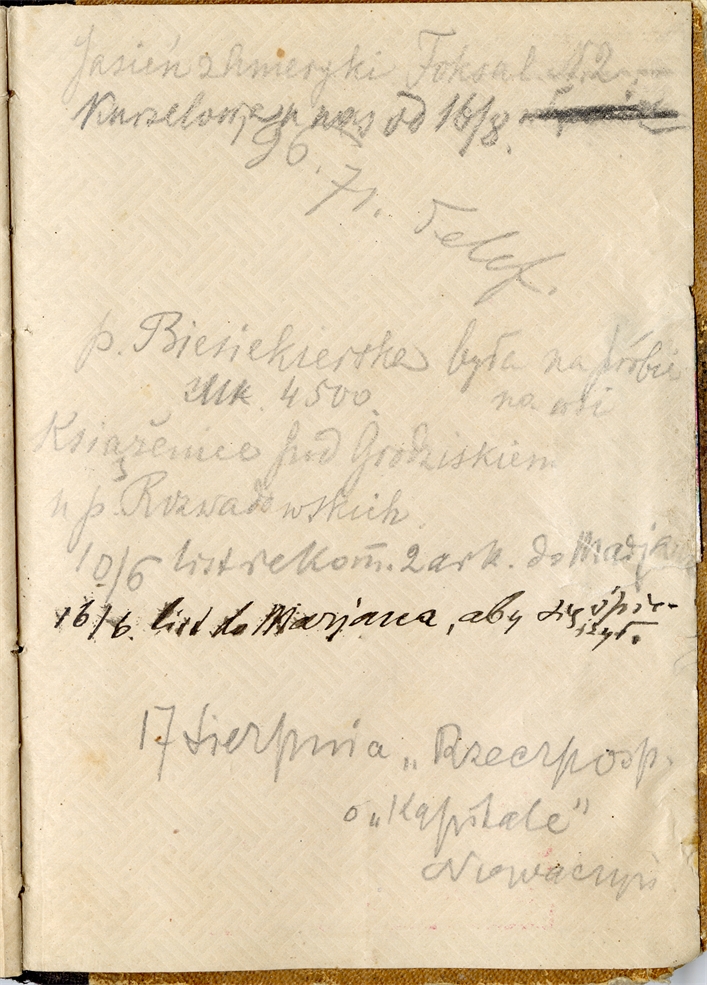 Jasień z Ameryki Foksal N. 2
u nas od 16/8.
96.
71. Telef.
p. Biesiekierska była na próbie
Mk. 4500. na wsi
Książenice pod Grodziskiem
u p. Rozwadowskich.
10/6 list rekom. 2 ark. do Marjana
16/6. list do Marjana, aby się śpie-
szył.
17 Sierpnia „Rzeczposp.
o „Kapitale"
Nowaczyń